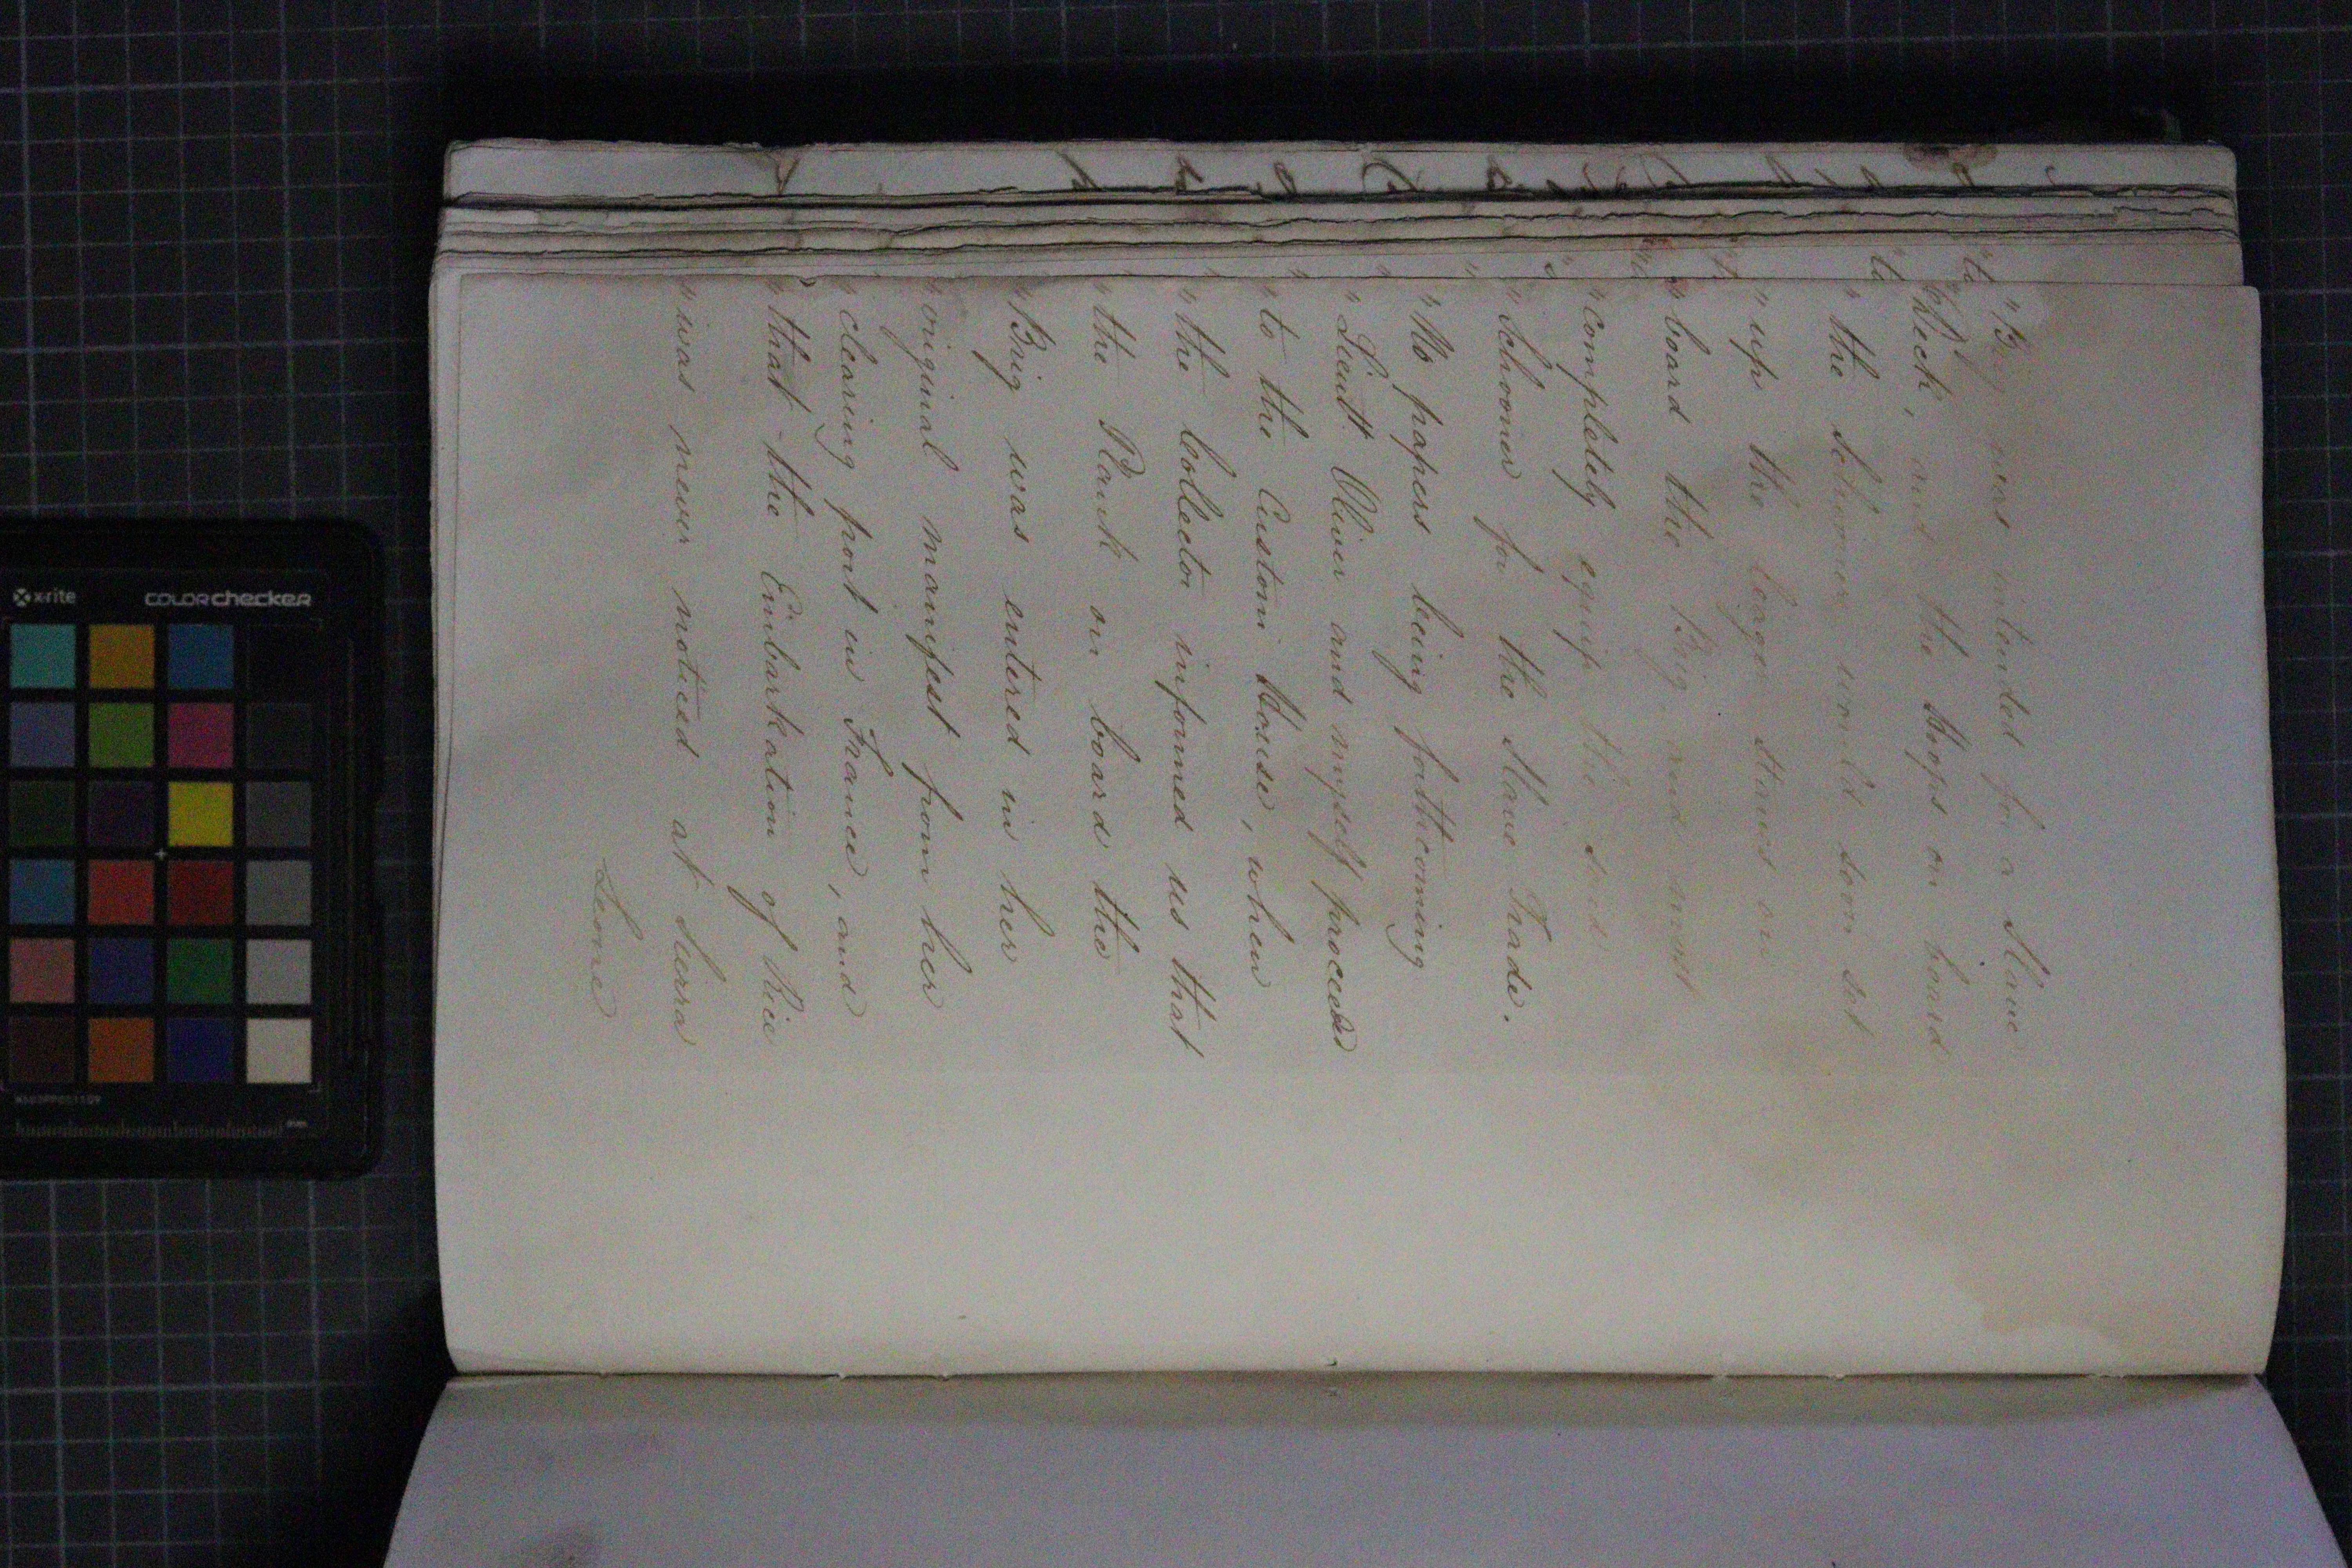 " Brig was intended for a Slave
" Deck, and the Hoops on board
" the Schooner would soon set
" up the leager staves on
" board the Brig, and most
" completely equip the said
" Schooner for the Slave Trade.
" No papers being forthcoming
" Lieutt. Oliver and myself proceeded
" to the Custom House, when
" the Collector informed us that
" the Plank on board the
" Brig was entered in her
" original manifest from her
" clearing port in France, and
" that the Embarkation of Rice
" was never noticed at Sierra
Leone
x-rite
colorchecker